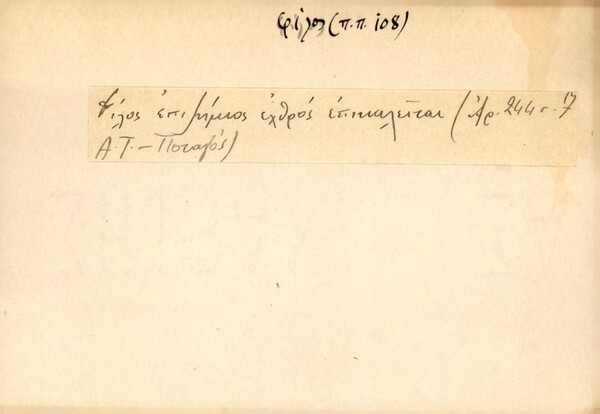 φίλος (π.π. 108)
Φίλος ἐπιζήμιος ἐχθρός ἐπικαλεῖται (Ἀρ. 244 σ. 17
Α.Τ. – Ποταμός)